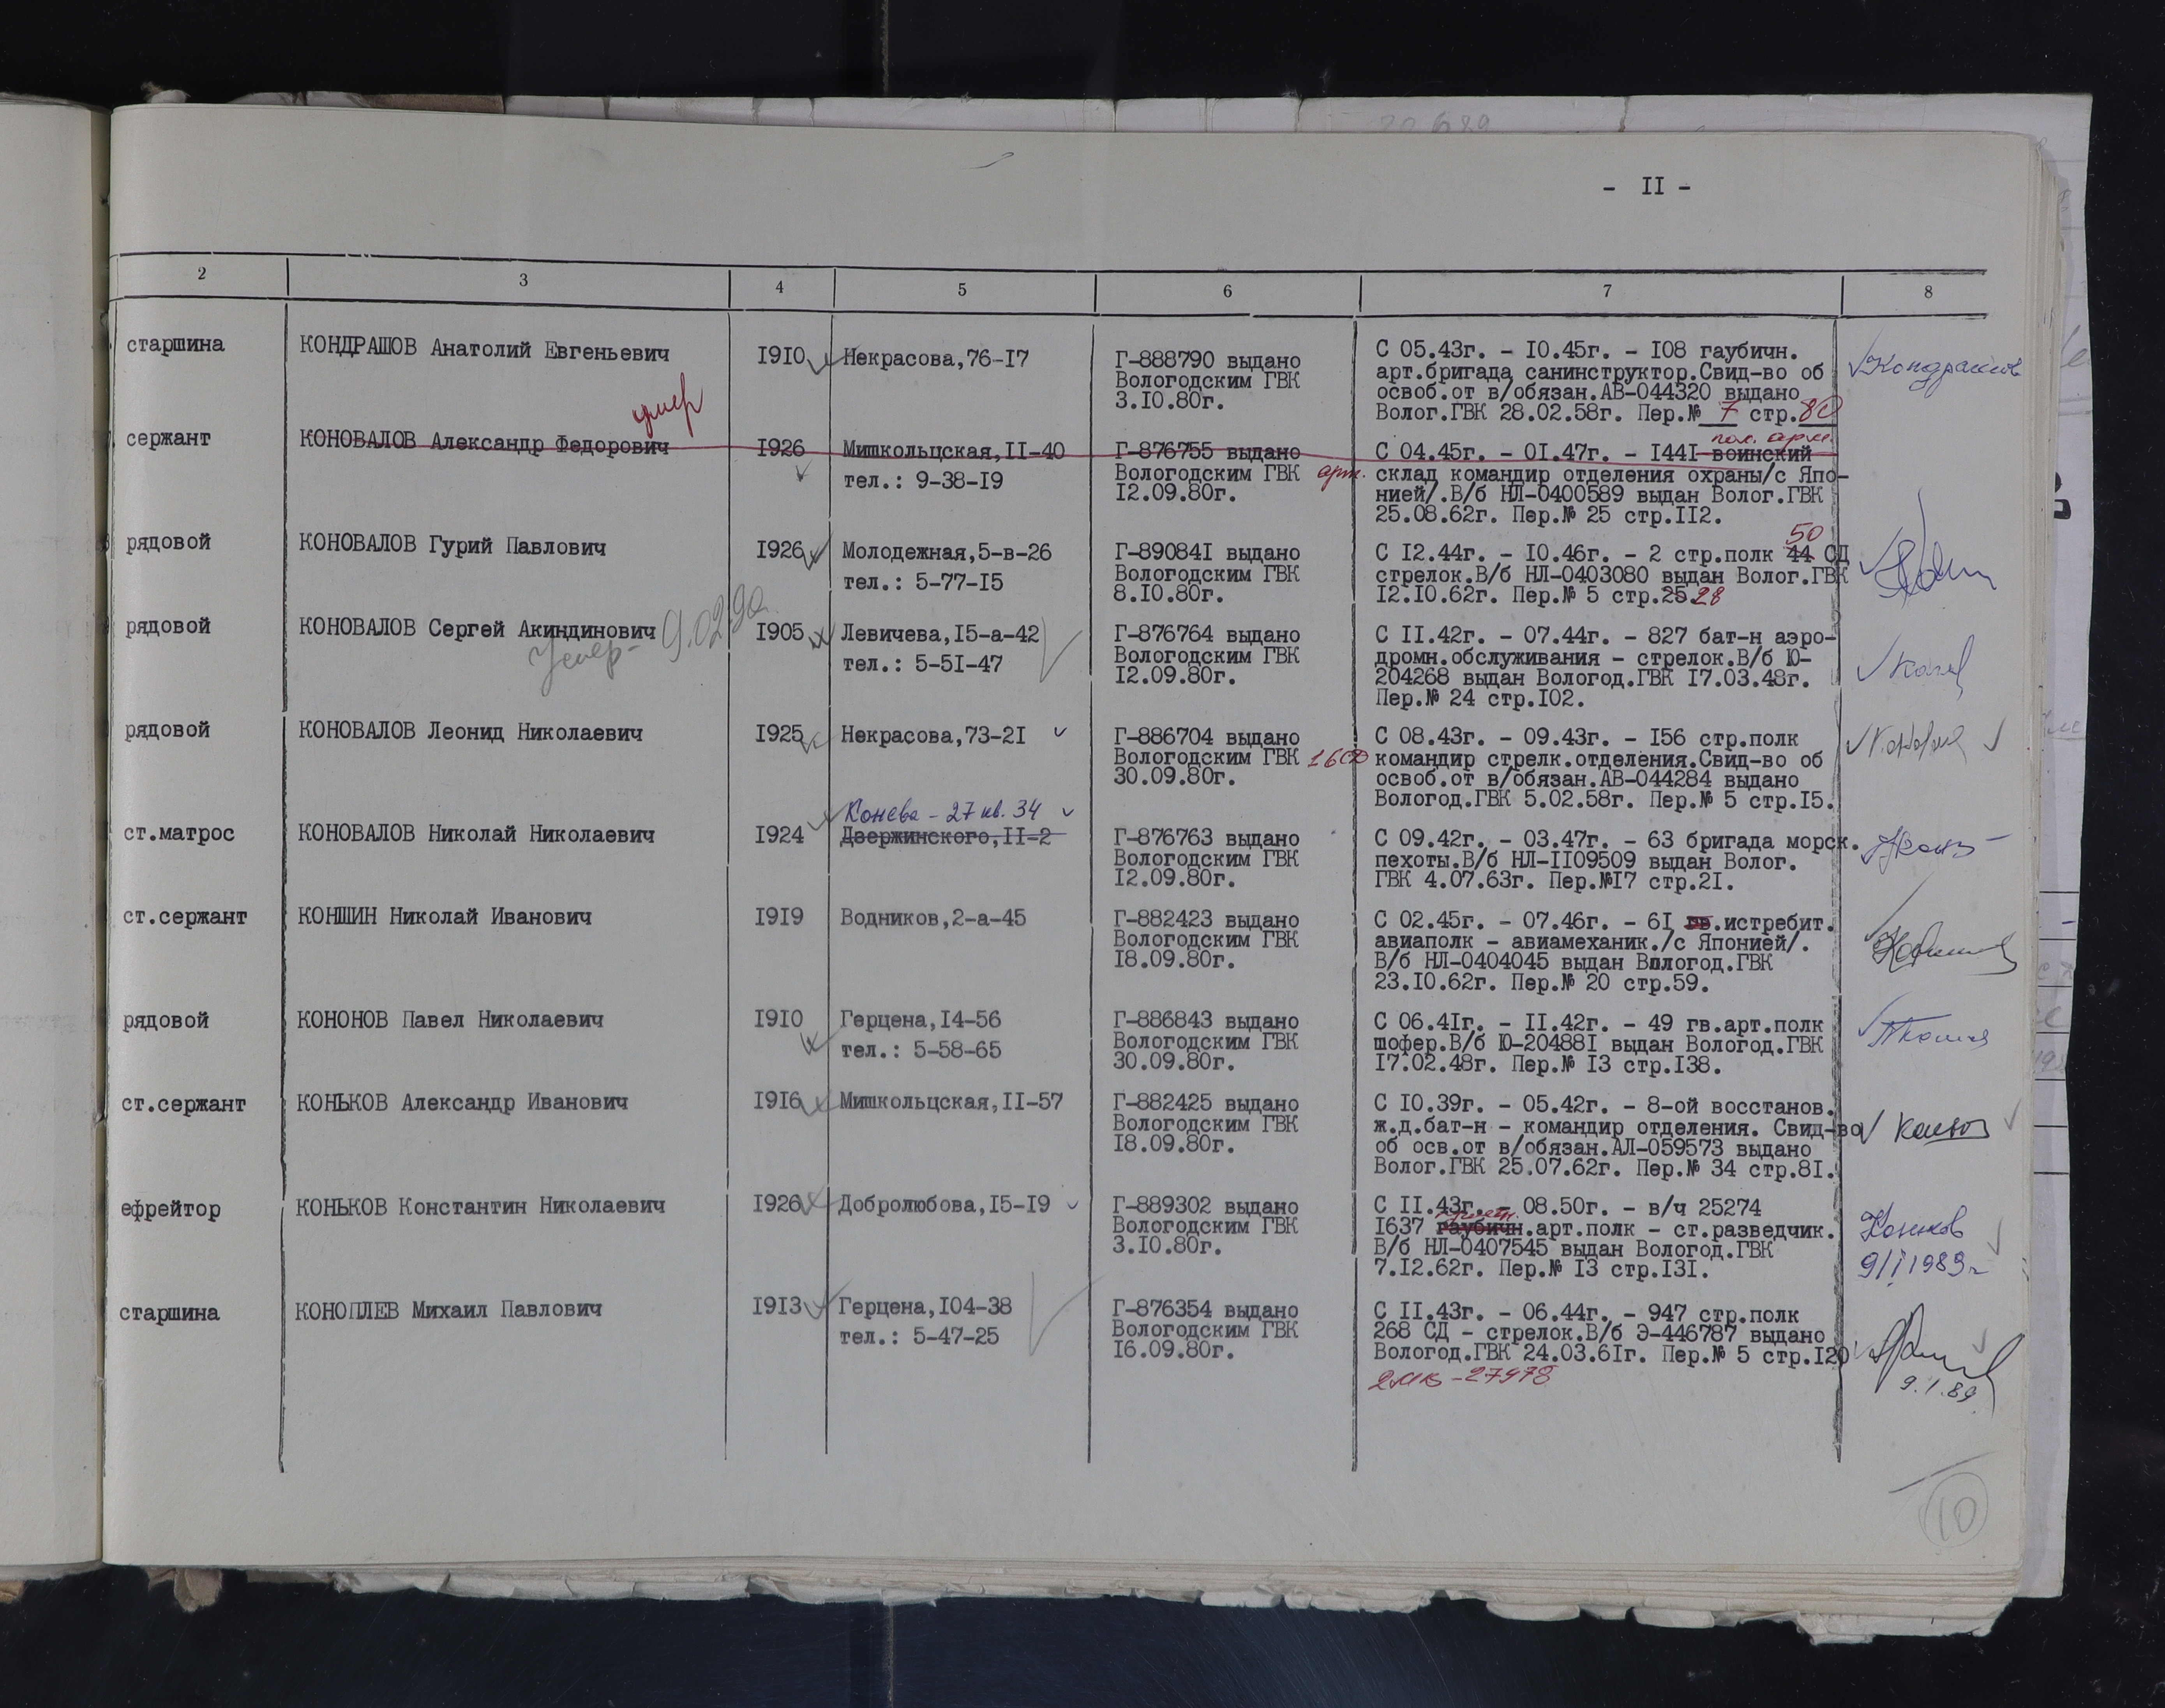 - II -
2 3 4 5 6 7 8
старшина КОНДРАШОВ Анатолий Евгеньевич I9I0 Некрасова,76-I7 Г-888790 выдано С 05.43г. - I0.45г. - I08 гаубичн. Кондрашов
Вологодским ГВК арт.бригада санинструктор.Свид-во об
3.I0.80г. освоб.от в/обязан.АВ-044320 выдано
Волог.ГВК 28.02.58г. Пер.№ 7 стр.80
умер
пол. арм.
сержант КОНОВАЛОВ Александр Федорович I926 Мишкольцская,II-40 Г-876755 выдано С 04.45г. - 0I.47г. - I44I воинский
тел.: 9-38-I9 Вологодским ГВК арт. склад командир отделения охраны/с Япо-
I2.09.80г. нией/.В/б НЛ-0400589 выдан Волог.ГВК
25.08.62г. Пер.№ 25 стр.II2.
50
рядовой КОНОВАЛОВ Гурий Павлович I926 Молодежная,5-в-26 Г-89084I выдано С I2.44г. - I0.46г. - 2 стр.полк 44 СД
тел.: 5-77-I5 Вологодским ГВК стрелок.В/б НЛ-0403080 выдан Волог.ГВК
8.I0.80г. I2.I0.62г. Пер.№ 5 стр.25.28
рядовой КОНОВАЛОВ Сергей Акиндинович I905 Левичева,I5-а-42 Г-876764 выдано С II.42г. - 07.44г. - 827 бат-н аэро-
Умер - 9.02.90 тел.: 5-5I-47 Вологодским ГВК дромн.обслуживания - стрелок.В/б Ю-
I2.09.80г. 204268 выдан Вологод.ГВК I7.03.48г.
Пер.№ 24 стр.I02.
рядовой КОНОВАЛОВ Леонид Николаевич I925 Некрасова,73-2I Г-886704 выдано С 08.43г. - 09.43г. - I56 стр.полк
Вологодским ГВК командир стрелк.отделения.Свид-во об
30.09.80г. освоб.от в/обязан.АВ-044284 выдано
Вологод.ГВК 5.02.58г. Пер.№ 5 стр.I5.
Конева - 27 кв. 34
ст.матрос КОНОВАЛОВ Николай Николаевич I924 Дзержинского,II-2 Г-876763 выдано С 09.42г. - 03.47г. - 63 бригада морск.
Вологодским ГВК пехоты.В/б НЛ-II09509 выдан Волог.
I2.09.80г. ГВК 4.07.63г. Пер.№I7 стр.2I.
ст.сержант КОНШИН Николай Иванович I9I9 Водников,2-а-45 Г-882423 выдано С 02.45г. - 07.46г. - 6I гв.истребит.
Вологодским ГВК авиаполк - авиамеханик./с Японией/.
I8.09.80г. В/б НЛ-0404045 выдан Вологод.ГВК
23.I0.62г. Пер.№ 20 стр.59.
рядовой КОНОНОВ Павел Николаевич I9I0 Герцена,I4-56 Г-886843 выдано С 06.4Iг. - II.42г. - 49 гв.арт.полк
тел.: 5-58-65 Вологодским ГВК шофер.В/б Ю-20488I выдан Вологод.ГВК
30.09.80г. I7.02.48г. Пер.№ I3 стр.I38.
ст.сержант КОНЬКОВ Александр Иванович I9I6 Мишкольцская,II-57 Г-882425 выдано С I0.39г. - 05.42г. - 8-ой восстанов.
Вологодским ГВК ж.д.бат-н - командир отделения. Свид-во
I8.09.80г. об осв.от в/обязан.АЛ-059573 выдано
Волог.ГВК 25.07.62г. Пер.№ 34 стр.8I.
ефрейтор КОНЬКОВ Константин Николаевич I926 Добролюбова,I5-I9 Г-889302 выдано С II.43г. - 08.50г. - в/ч 25274
Вологодским ГВК I637 гаубичн.арт.полк - ст.разведчик. Коньков
3.I0.80г. В/б НЛ-0407545 выдан Вологод.ГВК 9/I 1989г
7.I2.62г. Пер.№ I3 стр.I3I.
старшина КОНОПЛЕВ Михаил Павлович I9I3 Герцена,I04-38 Г-876354 выдано С II.43г. - 06.44г. - 947 стр.полк
тел.: 5-47-25 Вологодским ГВК 268 СД - стрелок.В/б Э-446787 выдано
I6.09.80г. Вологод.ГВК 24.03.6Iг. Пер.№ 5 стр.I20
9.1.89
10